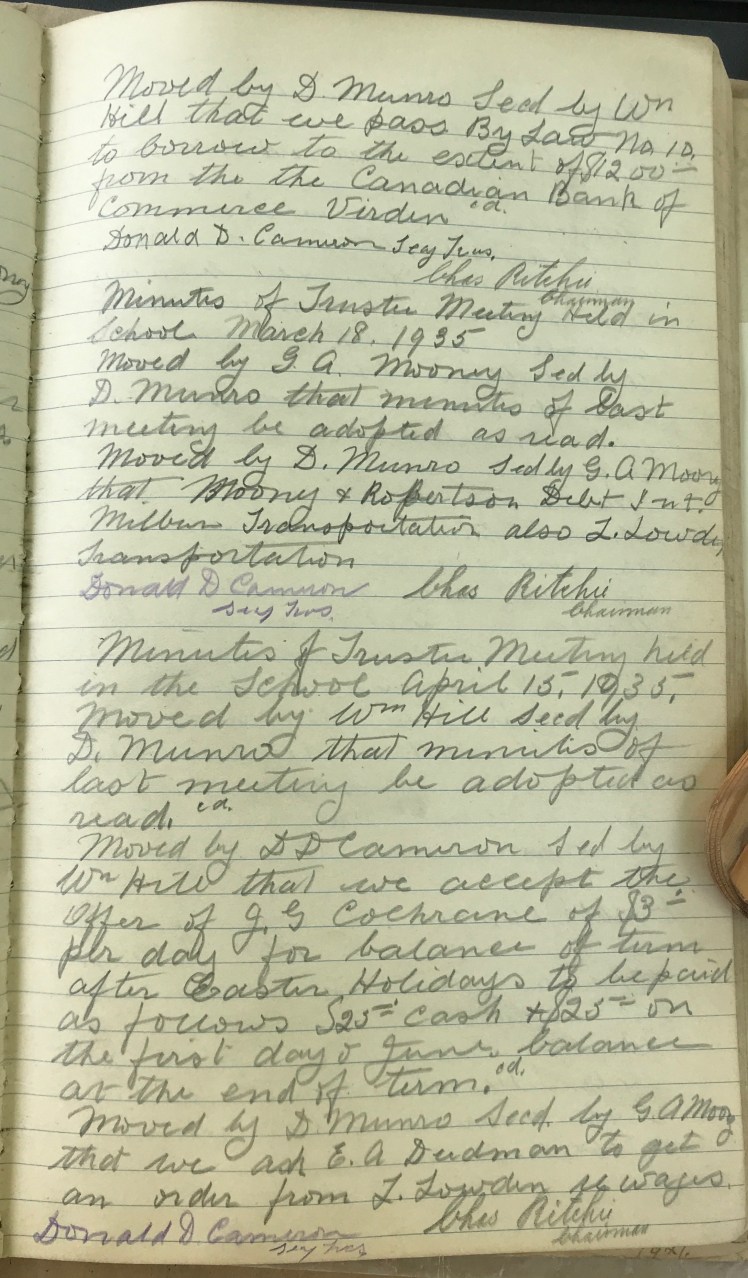 Moved by D. Munro Secd by Wm
Hill that we pass By Law No. 10.
to borrow to the extent of $1200=
from the the Canadian Bank of
Commerce Virden cd.
Donald D. Cameron Secy Treas.
Chas Ritchie
Chairman
Minutes of Trustee Meeting Held in
School March 18. 1935
Moved by G. A. Mooney Secd by
D. Munro that minutes of Last
meeting be adopted as read.
Moved by D. Munro Secd by G. A Mooney
that Mooney & Robertson Debt Int.
Transportation also L. Lowden
Transportation
Donald D Cameron Chas Ritchie
Secy Treas. Chairman
Minutes of Trustee Meeting held
in the School April 15, 1935.
Moved by Wm Hill Secd by
D. Munro that minutes of
last meeting be adopted as
read. cd.
Moved by D D Cameron Secd by
Wm Hill that we accept the
Offer of J. G Cochrane of $3=
per day for balance of term
after Easter Holidays to be paid
as follows $25= cash + $25= on
the first day of June, balance
at the end of term. cd.
Moved by D. Munro Secd. by G A Mooney
that we ask E. A Deedman to get
an order from L. Lowden re wages.
Chas Ritchie
Donald D Cameron Chairman
Secy Treas